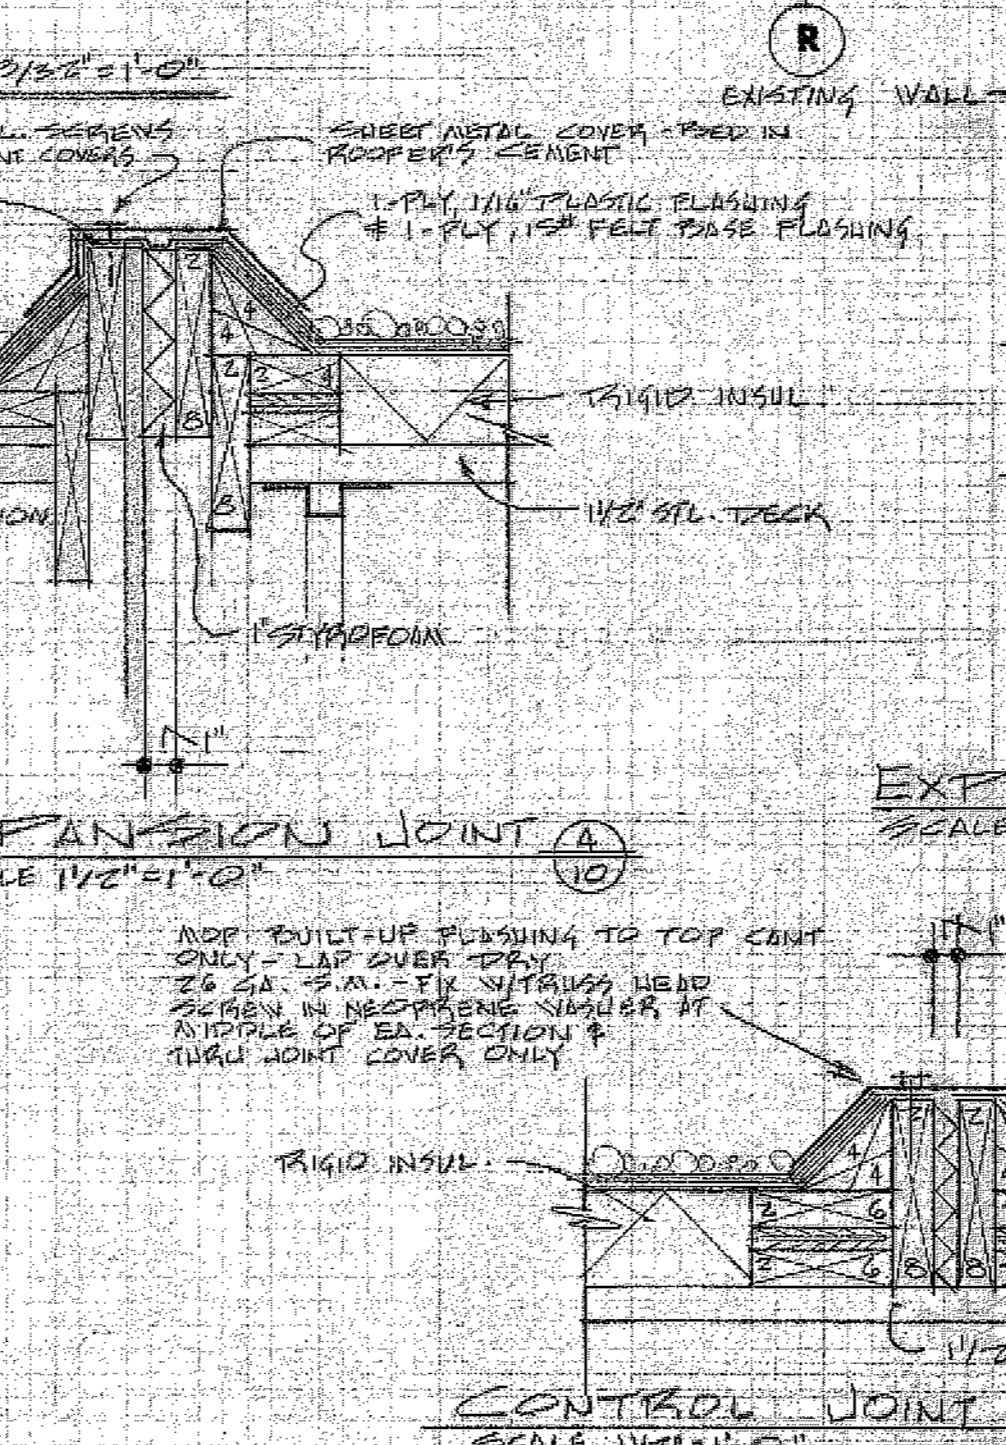 R
3/32"=1'-0"
EXISTING WALL
L. SCREWS
NT COVERS
SHEET METAL COVER - BED IN
ROOFER'S CEMENT
1-PLY, 1/16" PLASTIC FLASHING
& 1-PLY, 15# FELT BASE FLASHING
1
2
4
4
2
2
4
8
RIGID INSUL
8
ION
1 1/2" STL. DECK
1" STYROFOAM
1"
PANSION JOINT 4
10
LE 1 1/2"=1'-0"
EXP
SCALE
MOP BUILT-UP FLASHING TO TOP CANT
ONLY - LAP OVER DRY
26 GA. S.M. - FIX W/TRUSS HEAD
SCREW IN NEOPRENE WASHER AT
MIDDLE OF EA. SECTION &
THRU JOINT COVER ONLY
1"
RIGID INSUL.
2
2
4
4
2
6
2
6
8
8
1 1/2
CONTROL JOINT
SCALE 1 1/2"=1'-0"